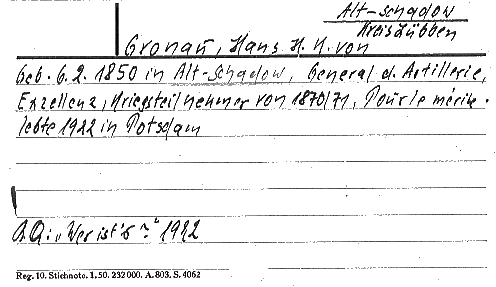 Alt-Schadow
Kreis Lübben
Gronau, Hans H. K. von
Geb. 6.2. 1850 in Alt-Schadow, General d. Artillerie,
Exzellenz, Kriegsteilnehmer von 1870/71, Pour le mérite.
lebte 1922 in Potsdam
QQ: „Wer ist's?" 1922
Reg. 10. Stichnote. 1. 50. 232 000. A. 803. S. 4062